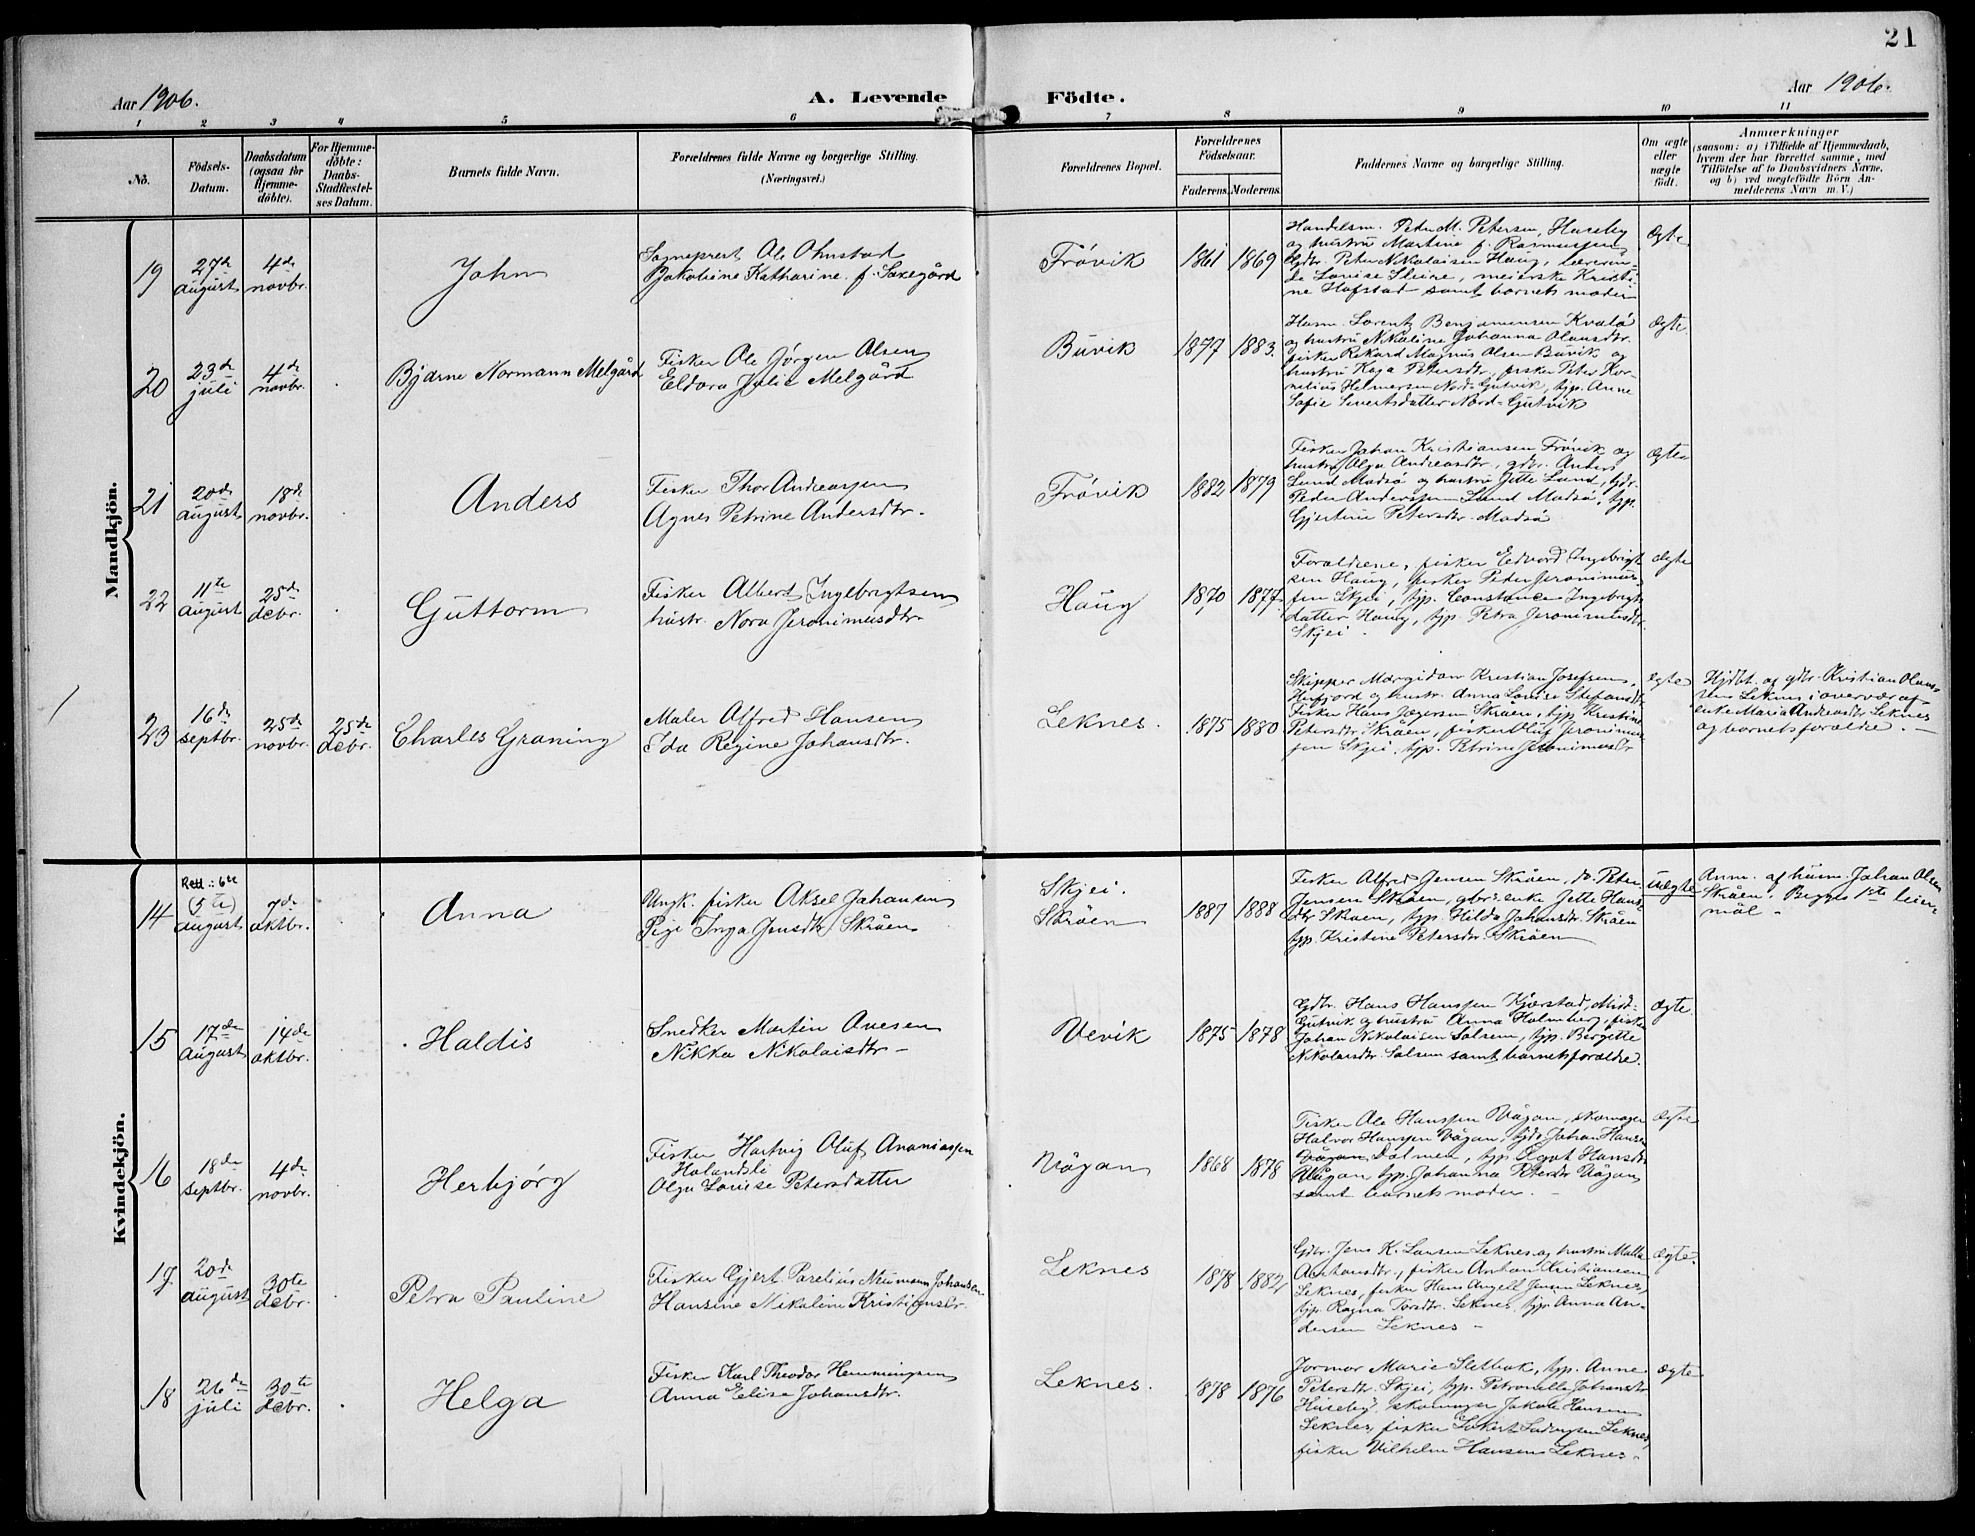 21
Aar 1906.
A. Levende Födte.
Aar 1906.
1 2 3 4 5 6 7 8 9 10 11
No.
Födsels-
Datum.
Daabsdatum
(ogsaa for
Hjemme-
döbte).
For Hjemme-
döbte:
Daabs-
Stadfæstel-
ses Datum.
Barnets fulde Navn.
Forældrenes fulde Navne og borgerlige Stilling.
(Næringsvei.)
Forældrenes Bopæl.
Forældrenes
Födselsaar.
Faderens. Moderens.
Faddernes Navne og borgerlige Stilling.
Om ægte
eller
uægte
födt.
Anmærkninger
(saasom: a) i Tilfælde af Hjemmedaab,
hvem der har forrettet samme, med
Tilföielse af to Daabsvidners Navne,
og b) ved uægtefödte Börn An-
melderens Navn m. V.)
Mandkjön.
19
27de
august
4de
novbr.
John
Sogneprest Ole Ohnstad
Jakobine Katharine f. Saxegård
Frövik
1861 1869
Handelsm. Peter M. Petersen, Huseby
og hustru Martine f. Rasmussen,
Gdbr. Peter Nikolaisen Haug, lærerin-
de Lovise Steine, meierske Kristi-
ne Hofstad samt barnets moder
Ægte
20
23de
juli
4de
novbr.
Bjarne Normann Melgård
Fisker Ole Jörgen Olsen
Eldora Julie Melgård
Buvik
1877 1883.
Husm. Lorentz Benjaminsen Kvalö
og hustru Nikoline Johanna Olausdtr.
fisker Rikard Magnus Olsen Buvik og
hustru Kaja Petersdtr, fisker Peter Kor-
nelius Helmersen Nord-Gutvik, tjp. Anne
Sofie Sivertsdatter Nord-Gutvik
Ægte
21
20de
august
18de
novbr.
Anders
Fisker Thor Andreassen
Agnes Petrine Andersdtr.
Frövik
1882 1879
Fisker Johan Kristiansen Frövik og
hustru Olga Andreasdtr, gdbr. Anders
Lund Madsö og hustru Jitte Lund, Gdr.
Peder Anderssen Lund Madsö, tjp.
Gjertine Petersdtr. Madsö
Ægte
22
11te
august
25de
debr.
Guttorm
Fisker Albert Ingebrigtsen
hustr. Nora Jeronimusdtr.
Haug
1870 1877
Forældrene, fisker Edvard Ingebrigt-
sen Haug, fisker Peder Jeronimus-
sen Skjei, tjp. Constance Ingebrigts-
datter Haug, tjp. Petra Jeronimusdtr.
Skjei.
Ægte
23
16de
septbr.
25de
novbr.
25de
debr.
Charles Graning
Maler Alfred Hansen
Ida Regine Johansdtr.
Leknes.
1875 1880
Skipper Margidon Kristian Josefsen,
Herfjord og hustr. Anna Lovise Stefansdtr
Fisker Hans Jægersen Skråen, tjp. Kristine
Petersdtr Skråen, fisker Oluf Jeronimus-
sen Skjei, tjp. Petrine Jeronimusdtr
Ægte
Hjdbt. af gdbr. Kristian Olaus-
sen Leknes i overvær af
enke Maria Andreasdtr Leknes
og barnets forældre. –
Kvindekjön.
14
Rett.: 6te
(5te)
august
7de
oktbr.
Anna
Ungk. fisker Aksel Johansen
Pige Inga Jensdtr Skråen
Skjei.
Skråen
1887 1888
Fisker Alfred Jensen Skråen, do. Peter
Jensen Skråen, gbr's enke Jette Hans-
dtr Skråen, tjp. Hilda Johansdtr. Skråen
tjp. Kristine Petersdtr. Skråen
Uægte
Anm. af husm. Johan Olsen
Skråen. Begges 1ste leier-
mål.
15
17de
august
14de
oktbr.
Haldis
Snedker Martin Avesen
Nikka Nikolaisdtr –
Vevik
1875 1878
Gdbr. Hans Hanssen Kjærstad, Midt-
Gutvik og hustru Anna Holmberg, fisker
Johan Nikolaisen Solsem, tjp. Bergitte
Nikolaisdtr. Solsem samt barnets forældre.
Ægte
16
18de
septbr.
4de
novbr.
Herbjörg
Fisker Hartvig Oluf Ananiassen
Holandsli
Olga Lovise Petersdatter
Vågan
1868 1878
Fisker Ole Hanssen Vågan, skomager
Halvor Hanssen Vågan, Johan Hansen
Vågan Dalmen, tjp. Hansdtr
Vågan tjp. Johanna Petersdtr Vågan
samt barnets moder. –
Ægte
17
20de
august
30te
debr.
Petra Pauline
Fisker Gjert Parelius Neumann Johansen
Hansine Nikoline Kristiansdr.
Leknes
1878 1882
Gdbr. Jens K. Larsen Leknes og hustru
Anthonsdtr., fisker Anton Kristiansen
Leknes, fisker Hans Angell Jensen Leknes,
tjp. Ragna Torsdtr. Leknes, tjp. Anna An-
dersen Leknes –
Ægte.
18
26de
juli
30te
debr.
Helga
Fisker Karl Theodor Hemmingsen
Anna Elise Johansdtr.
Leknes.
1878 1876
Jormor Marie Sletbak, tjp. Anne
Petersdtr. Skjei, tjp. Petronelle Johansdtr
Huseby, skomager Jakob Hansen
Leknes, fisker Leknes,
fisker Vilhelm Hansen Leknes.
Ægte